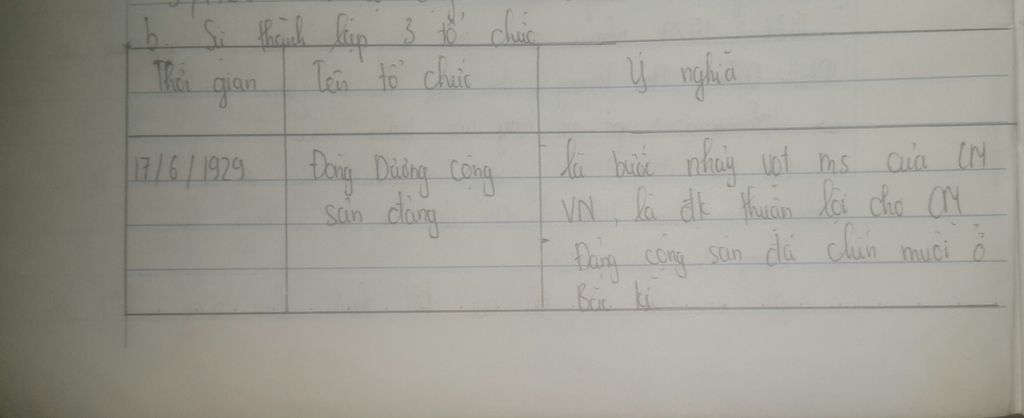 b. Sự thành lập 3 tổ chức
Thời gian Tên tổ chức Ý nghĩa
17/6/1929 Đông Dương cộng - là bước nhảy vọt ms của CM
sản đảng VN, là đk thuận lợi cho CM
- Đảng cộng sản đã chín muồi ở
Bắc kì